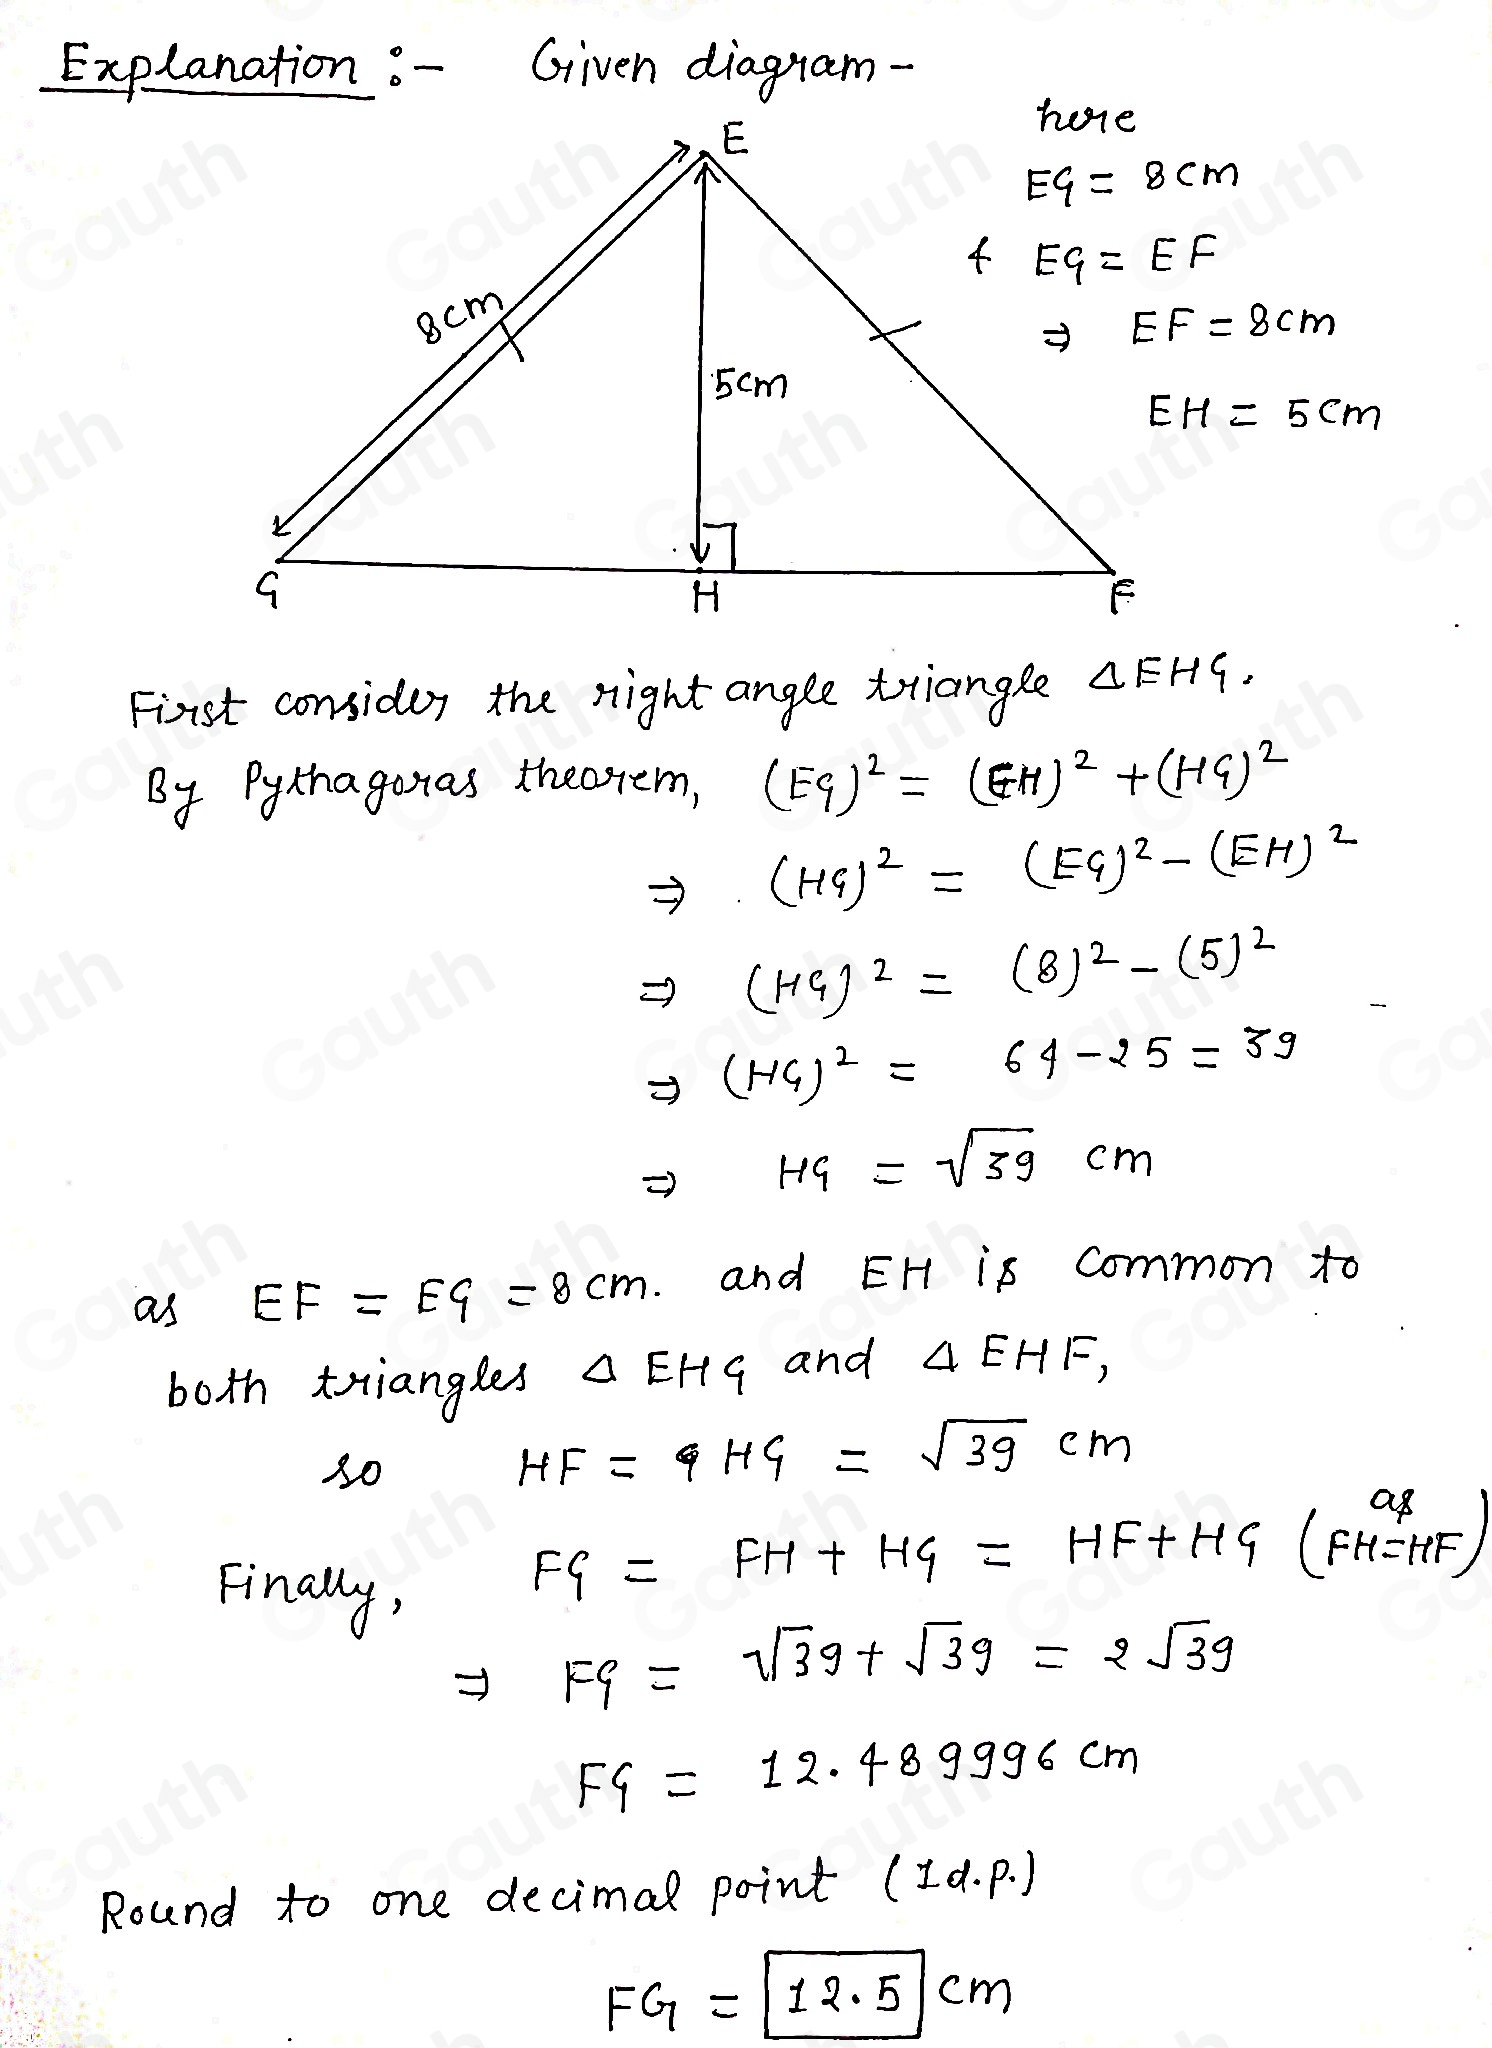 Explanation :- Given diagram -
here
E
EG = 8cm
& EG = EF
8cm
⇒ EF = 8cm
5cm
EH = 5cm
G H F
First consider the right angle triangle ΔEHG.
By Pythagoras theorem, (EG)² = (EH)² + (HG)²
⇒ (HG)² = (EG)² - (EH)²
⇒ (HG)² = (8)² - (5)²
⇒ (HG)² = 64 - 25 = 39
⇒ HG = √39 cm
as EF = EG = 8cm. and EH is common to
both triangles Δ EHG and Δ EHF,
so HF = HG = √39 cm
Finally, FG = FH + HG = HF + HG (as FH=HF)
⇒ FG = √39 + √39 = 2√39
FG = 12.489996 cm
Round to one decimal point (1d.p.)
FG = 12.5 cm
Gauth